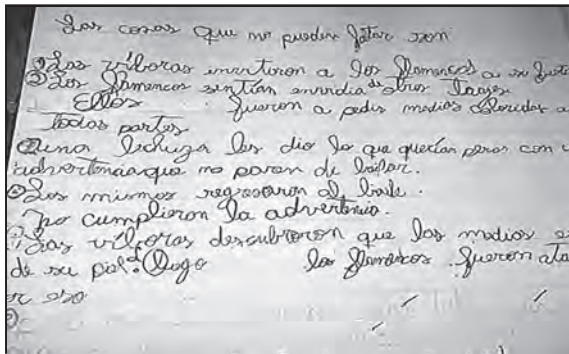 Las cosas que no pueden faltar son
Las víboras invitaron a los flamencos a su fiesta
Los flamencos sentían envidia de otros trajes
Ellos fueron a pedir medias coloridas a
todas partes
una lechuza les dio lo que querían peros con
advertencia que no paren de bailar.
Los mismos regresaron al baile.
no cumplieron la advertencia.
Las víboras descubrieron que las medias e
de su piel. luego los flamencos fueron ata
or eso